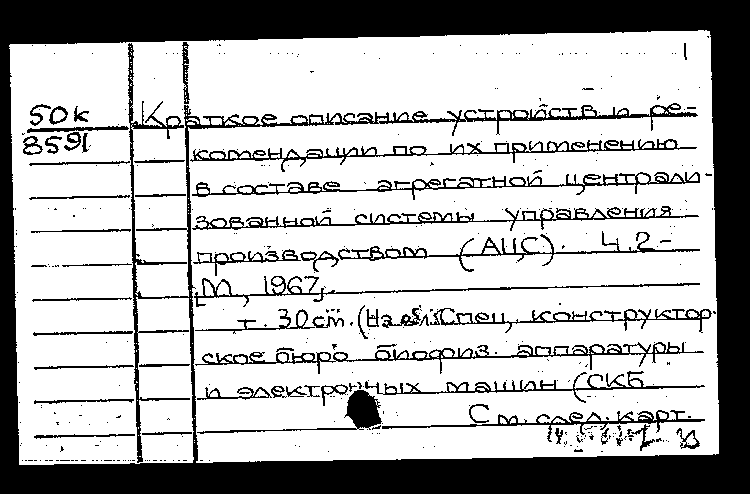 1
50к Краткое описание устройств и ре-
8591 комендации по их применению
в составе агрегатной централи-
зованной системы управления
производством (АЦС). Ч.2-
[М, 1967].
т. 30 cm. (На обл: Спец, конструктор-
ское бюро биофиз. аппаратуры
и электронных машин (СКБ
См. след. карт.